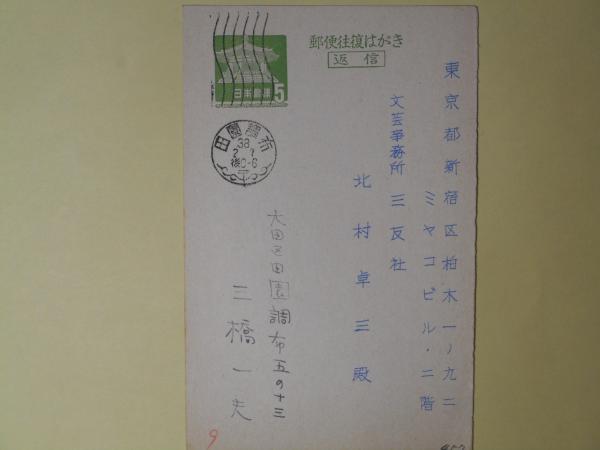 郵便往復はがき
返信
日本郵便
5
田園調布
38
後0-6
東京都新宿区柏木一ノ九二
ミヤコビル・二階
文芸事務所 三友社
北村卓三殿
大田区田園調布五の十三
三橋一夫
9